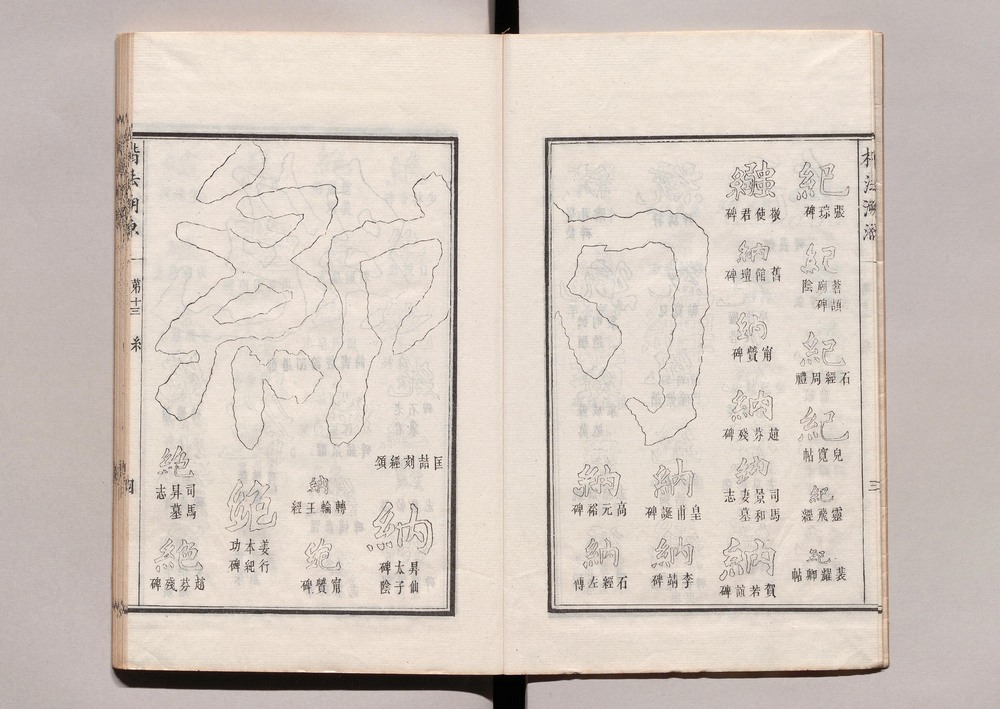 楷法溯源
三
紀
張琮碑
紀
蒼頡廟碑陰
紀
石經周禮
紀
兒寬帖
紀
靈飛經
紀
裴耀卿帖
敬使君碑
納
舊館壇碑
納
甯贙碑
納
趙芬殘碑
納
司馬景和妻墓志
納
賀若誼碑
納
皇甫誕碑
納
李靖碑
納
高元裕碑
納
石經左傳
匡喆刻經頌
納
昇仙太子碑陰
納
轉輪王經
絶
甯贙碑
絶
姜行本紀功碑
絶
司馬昇墓志
絶
趙芬殘碑
楷法溯源
第十三
糸
四